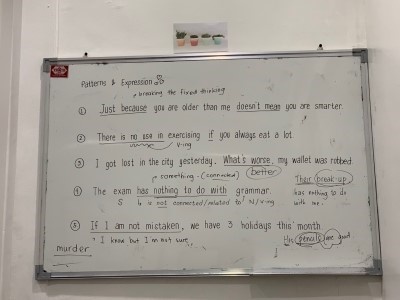 Patterns & Expression
breaking the fixed thinking
① Just because you are older than me doesn't mean you are smarter.
② There is no use in exercising if you always eat a lot.
V-ing
③ I got lost in the city yesterday. What's worse, my wallet was robbed.
something - (connected) better
Their break-up
④ The exam has nothing to do with grammar.
has nothing to do
S is not connected/related to N/V-ing
with me.
⑤ If I am not mistaken, we have 3 holidays this month
I know but I'm not sure
His pencils are good
murder